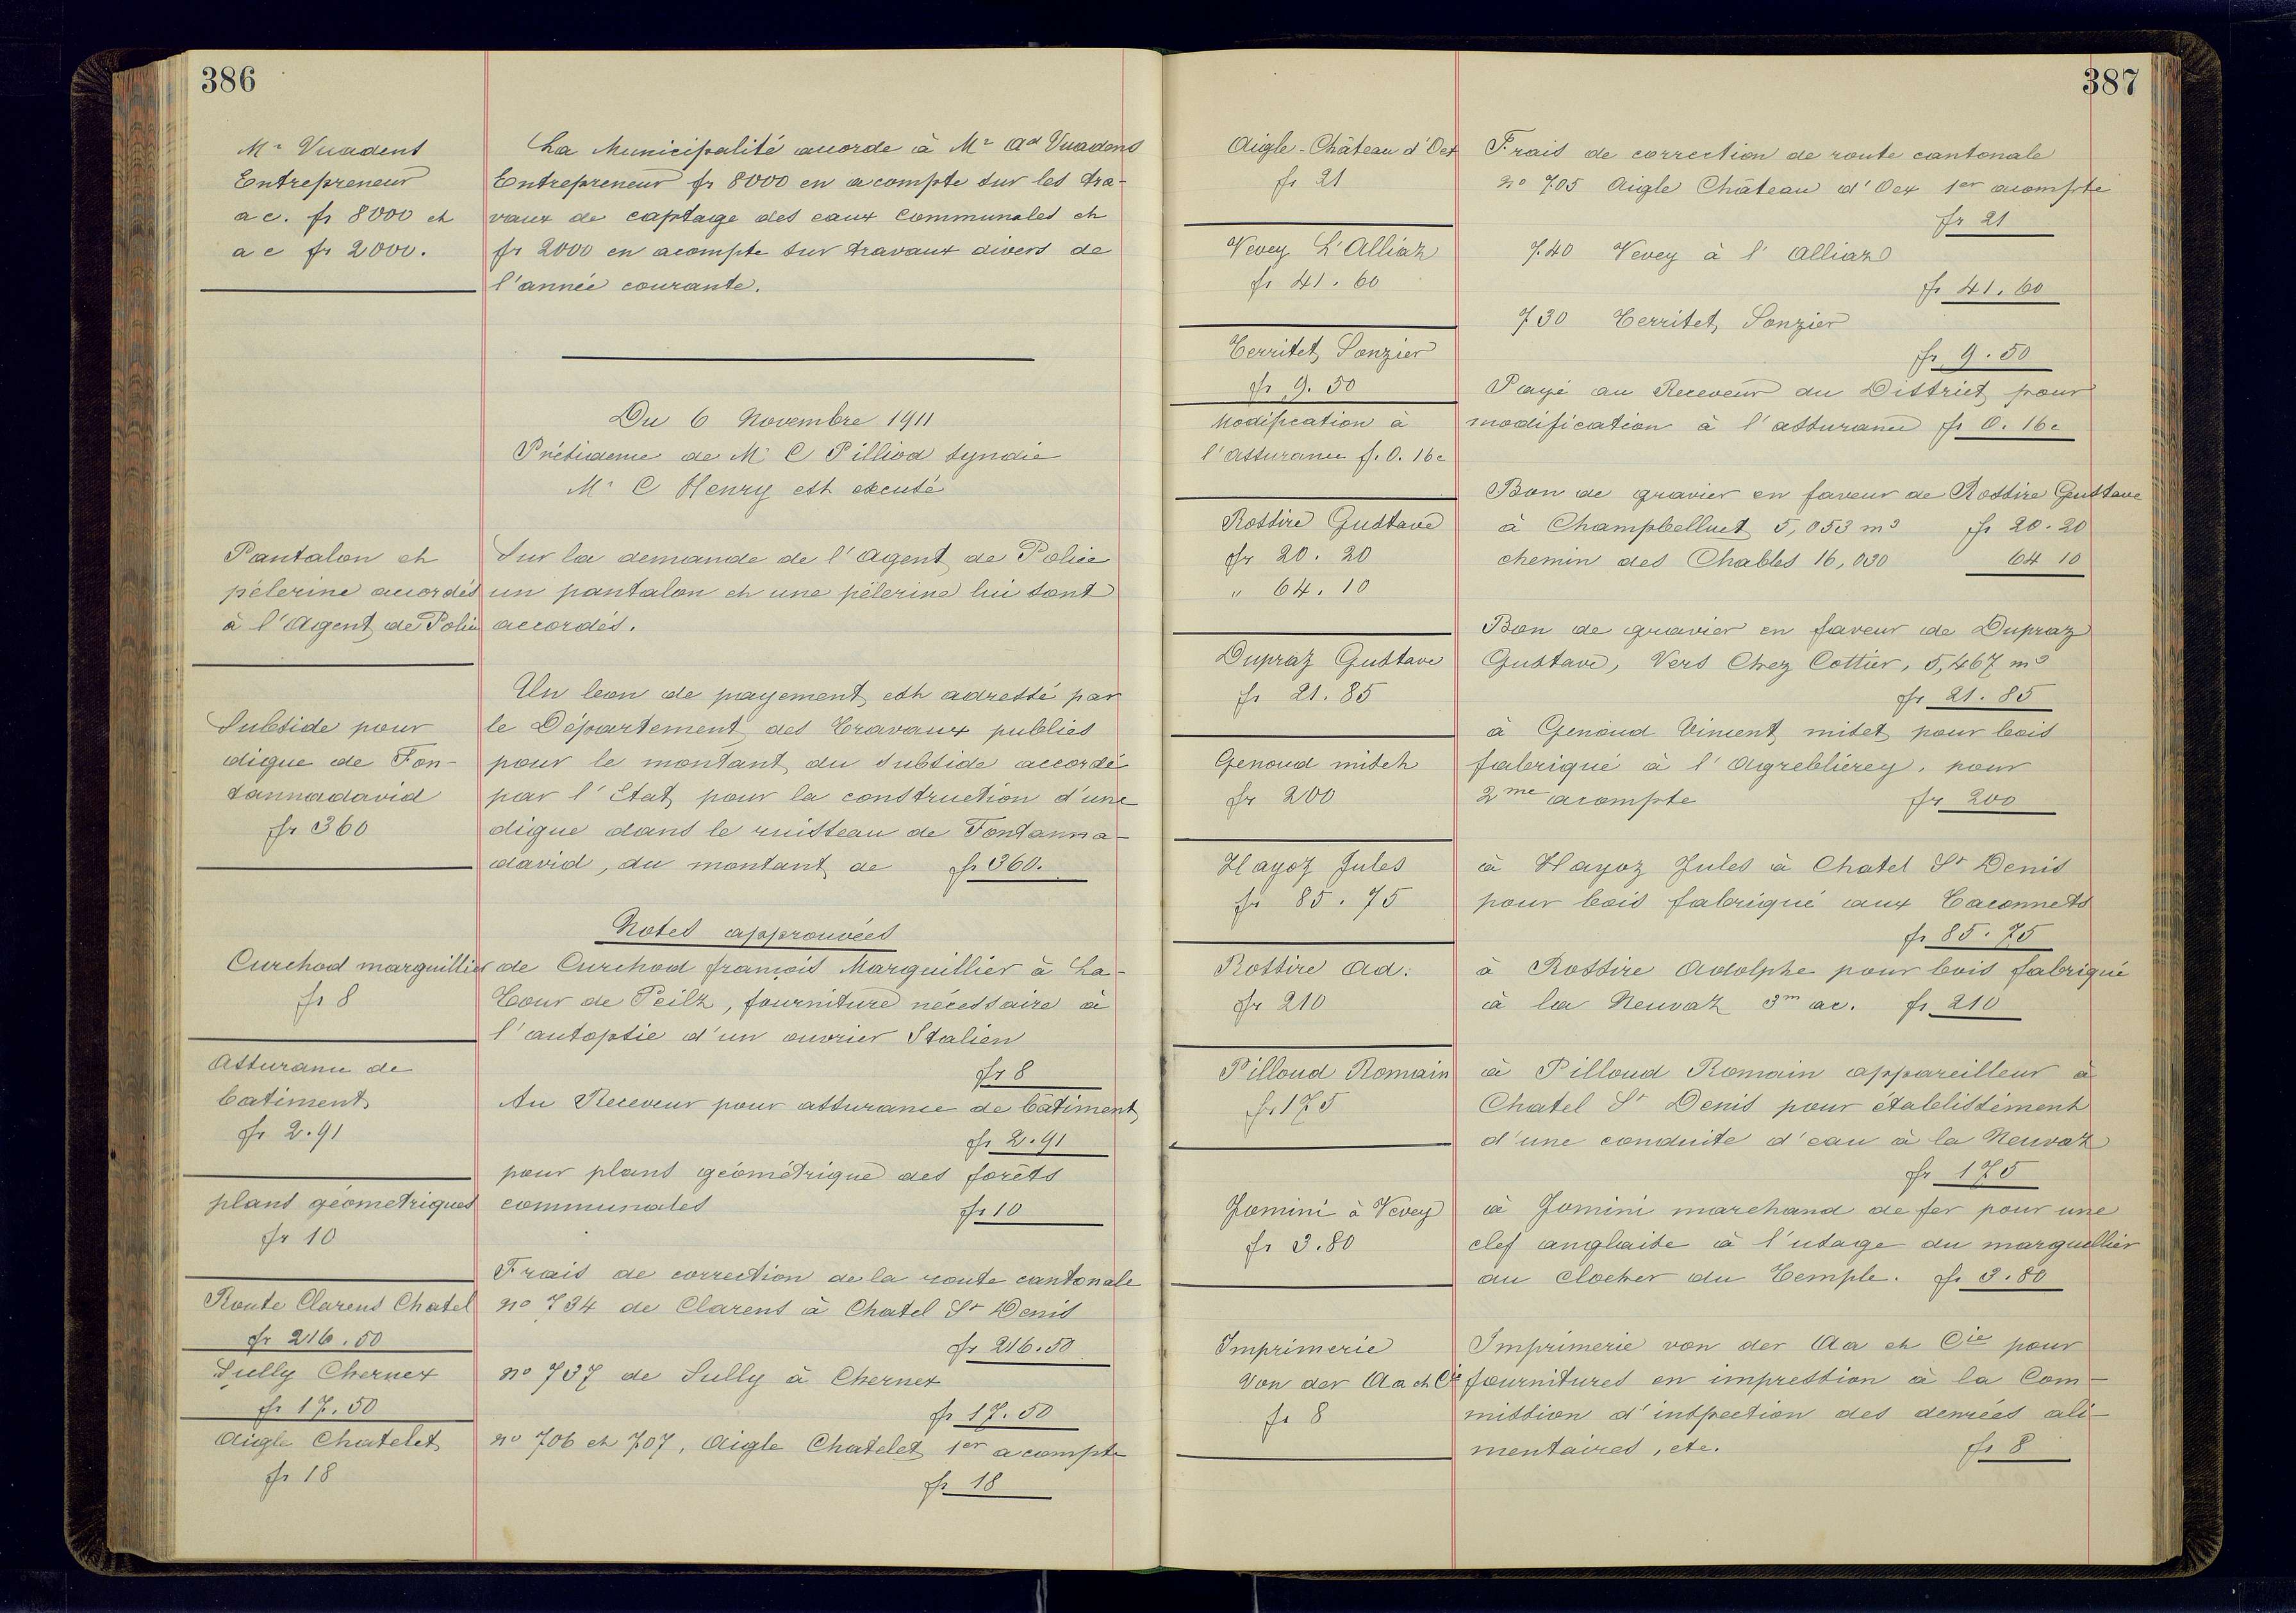 386
Mr Vuadent
Entrepreneur
a c. fr 8000 et
a c fr 2000.
La Municipalité accorde à Mr Ad Vuadens
Entrepreneur fr 8000 en acompte sur les tra-
vaux de captage des eaux Communales et
fr 2000 en acompte sur travaux divers de
l'année courante.
Du 6 Novembre 1911
Présidence de Mr C Pilliod syndic
Mr C Henry est excusé
Pantalon et
pélerine accordés
à l'Agent de Police
Sur la demande de l'Agent de Police
un pantalon et une pélerine lui sont
accordés.
Subside pour
digue de Fon-
tannadavid
fr 360
Un bon de payement est adressé par
le Département des Travaux publics
pour le montant du subside accordé
par l'Etat pour la construction d'une
digue dans le ruisseau de Fontanna-
david, du montant de fr 360.
Notes approuvées
Curchod marguillier
fr 8
de Curchod françois Marguillier à La-
Tour de Peilz, fourniture nécessaire à
l'autopsie d'un ouvrier Italien
fr 8
Assurance de
batiment
fr 2.91
Au Receveur pour assurance de bâtiment
fr 2.91
plans géometriques
fr 10
pour plans géométrique des forêts
communales fr 10
Route Clarens Chatel
fr 216.50
Frais de correction de la route cantonale
no 734 de Clarens à Chatel St Denis
fr 216.50
Sully Chernex
fr 17.50
no 737 de Sully à Chernex
fr 17.50
Aigle Chatelet
fr 18
no 706 et 707, Aigle Chatelet 1er acompte
fr 18
387
Aigle-Château d'Oex
fr 21
Frais de correction de route cantonale
no 705 Aigle Château d'Oex 1er acompte
fr 21
Vevey L'Alliaz
fr 41.60
740 Vevey à l'Alliaz
fr 41.60
Territet, Sonzier
fr 9.50
730 Territet, Sonzier
fr 9.50
Modification à
l'Assurance f. 0.16c
Payé au Receveur du District pour
modification à l'assurance fr 0.16c
Rossire Gustave
fr 20.20
" 64.10
Bon de gravier en faveur de Rossire Gustave
à Champbelluet 5,053 m3 fr 20.20
chemin des Chables 16,030 64 10
Dupraz Gustave
fr 21.85
Bon de gravier en faveur de Dupraz
Gustave, Vers Chez Cottier, 5,467 m3
fr 21.85
Genoud mitch
fr 200
à Genoud Vincent, mitet, pour bois
fabriqué à l'Agreblierey, pour
2me acompte fr 200
Hayoz Jules
fr 85.75
à Hayoz Jules à Chatel St Denis
pour bois fabriqué aux Taconnets
fr 85.75
Rossire Ad:
fr 210
à Rossire Adolphe pour bois fabriqué
à la Neuvaz 3m ac. fr 210
Pilloud Romain
fr 175
à Pilloud Romain appareilleur à
Chatel St Denis pour établissement
d'une conduite d'eau à la Neuvaz
fr 175
Jomini à Vevey
fr 3.80
à Jomini marchand de fer pour une
clef anglaise à l'usage du marguellier
au clocher du Temple. fr 3.80
Imprimerie
Von der Aa et Cie
fr 8
Imprimerie von der Aa et Cie pour
fournitures en impression à la Com-
mission d'inspection des denrées ali-
mentaires, etc. fr 8